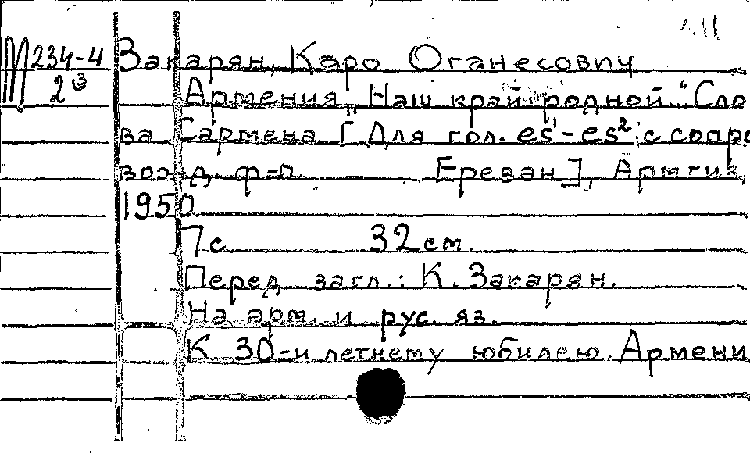 М 234-4 Закарян, Каро Оганесович
2³ Армения. Наш край родной. "Сло
ва Сармена [Для гол. es¹-es² с сопр
вожд. ф-п. Ереван], Армгиз,
1950
7 с 32 см.
Перед загл.: К. Закарян.
На арм. и рус. яз.
К 30-и летнему юбилею. Армени